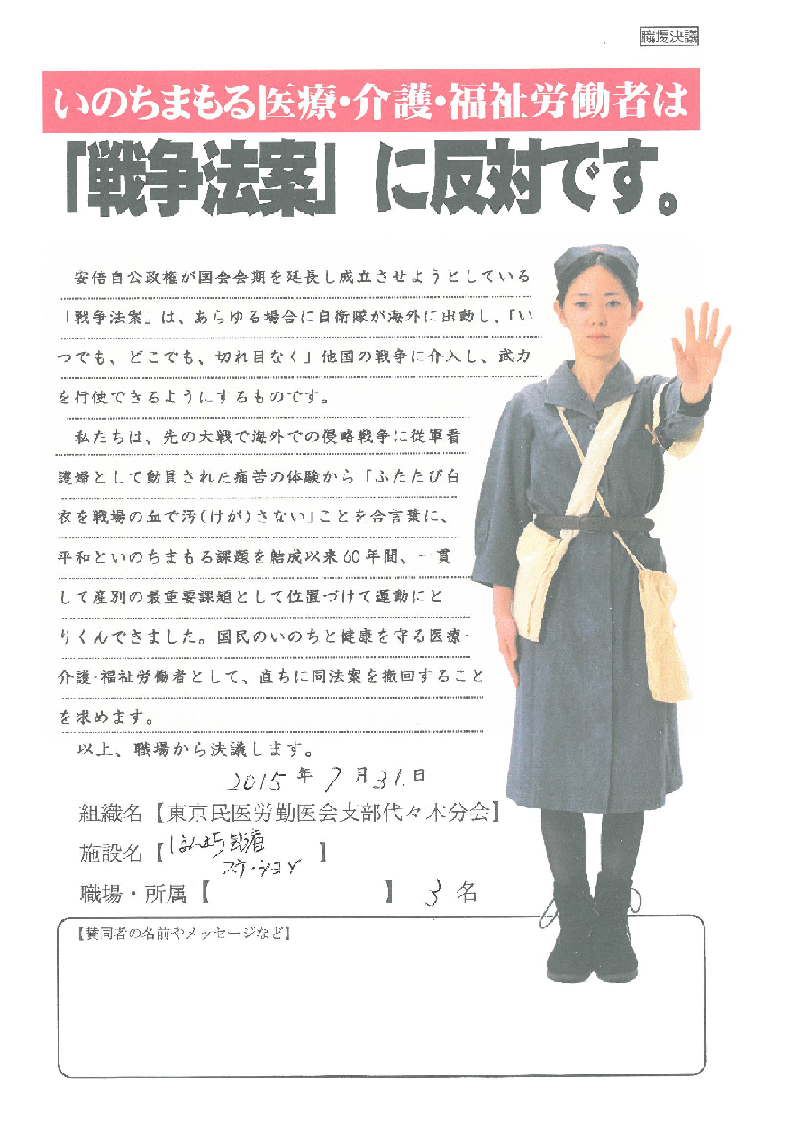 職場決議
いのちまもる医療・介護・福祉労働者は
「戦争法案」に反対です。
安倍自公政権が国会会期を延長し成立させようとしている
「戦争法案」は、あらゆる場合に自衛隊が海外に出動し、「い
つでも、どこでも、切れ目なく」他国の戦争に介入し、武力
を行使できるようにするものです。
私たちは、先の大戦で海外での侵略戦争に従軍看
護婦として動員された痛苦の体験から「ふたたび白
衣を戦場の血で汚(けが)さない」ことを合言葉に、
平和といのちまもる課題を結成以来60年間、一貫
して産別の最重要課題として位置づけて運動にと
りくんできました。国民のいのちと健康を守る医療・
介護・福祉労働者として、直ちに同法案を撤回すること
を求めます。
以上、職場から決議します。
2015年7月31日
組織名【東京民医労勤医会支部代々木分会】
施設名【
ステーション】
職場・所属【 】 3名
【賛同者の名前やメッセージなど】